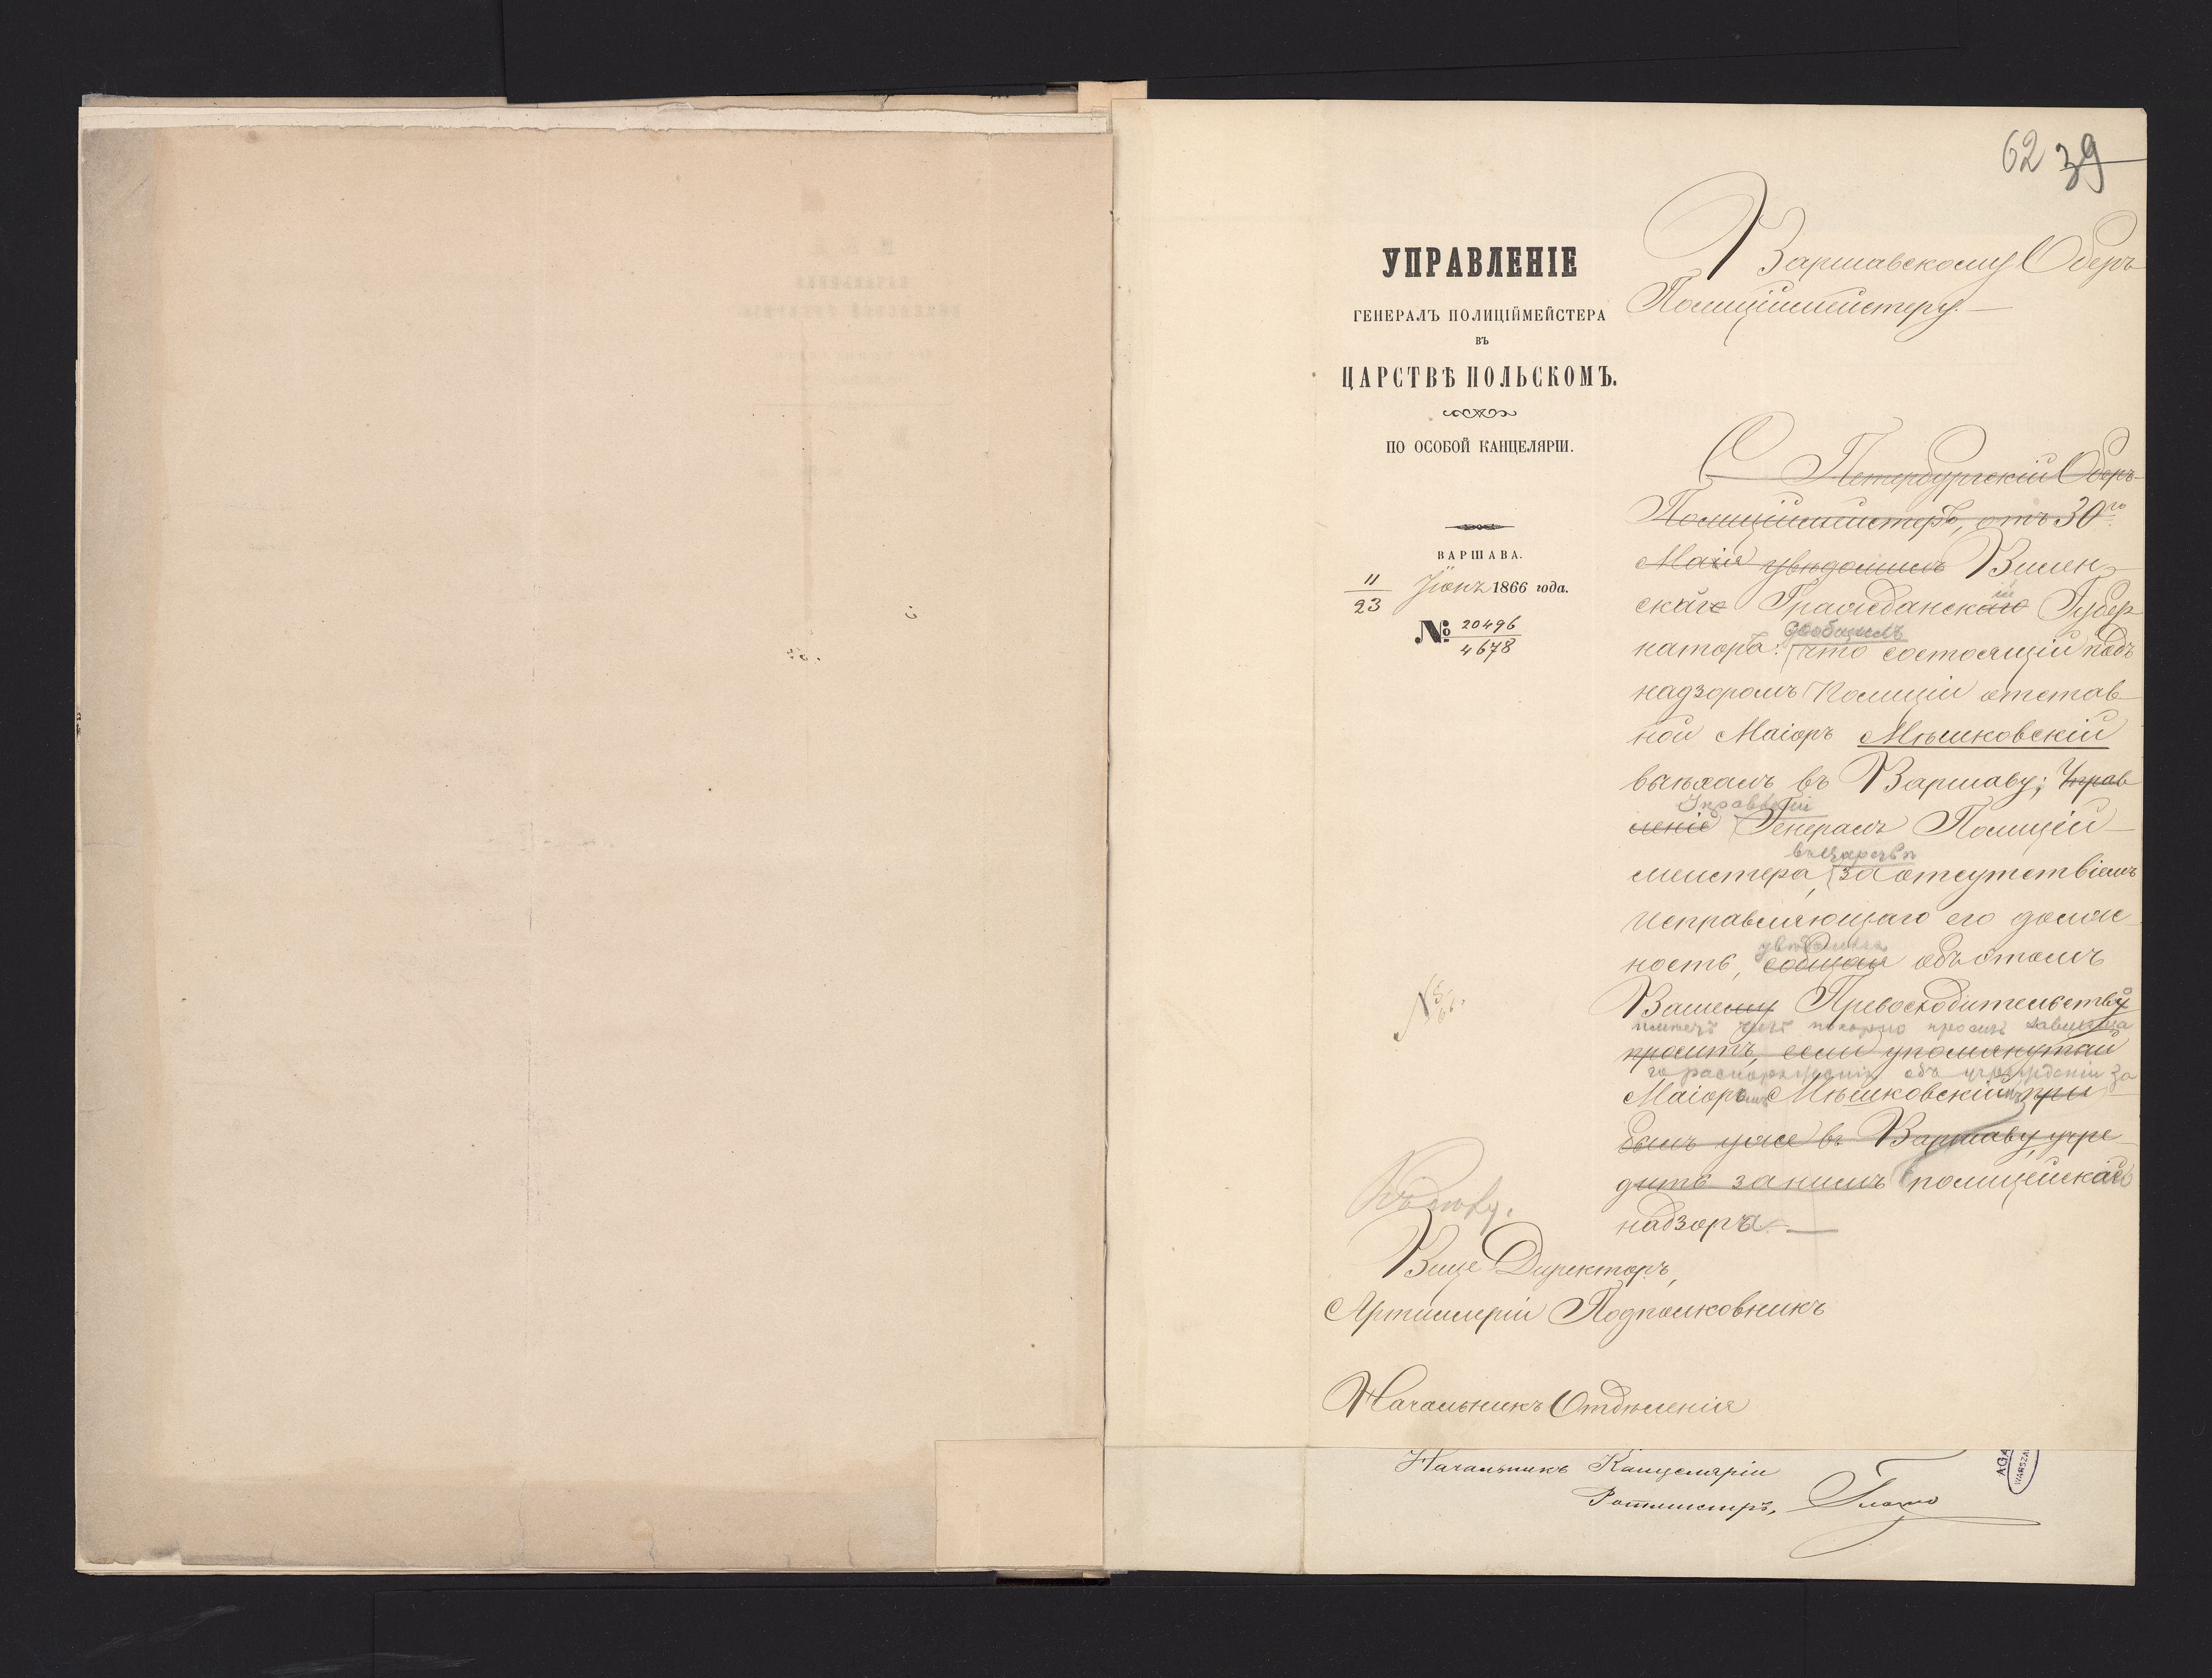 62 39
УПРАВЛЕНІЕ
ГЕНЕРАЛЪ ПОЛИЦІЙМЕЙСТЕРА
ВЪ
ЦАРСТВѢ ПОЛЬСКОМЪ.
ПО ОСОБОЙ КАНЦЕЛЯРІИ.
ВАРШАВА.
11/23 Іюнь 1866 года.
№ 20496/4678
Варшавскому Оберъ
Полиціймейстеру.
С Петербургскій Оберъ-
Полиціймейстеръ, отъ 30го
Маія увѣдомилъ Вилен-
скаго Гражданскаго ій Губер
сообщилъ
натора: что состоящій подъ
надзоромъ Полиціи отстав
ной Маіоръ Мѣшковскій
выѣхалъ въ Варшаву; Управ
Управленіе
леніе Генералъ Полицій-
въ Царствѣ
мейстера, за отсутствіемъ
Исправляющаго его долж
увѣдомляя
ность, сообщая объ этомъ
Вашему Превосходительству
имѣетъ честь покорно просить зависяща
проситъ, если упомянутый
го распоряженія объ учрежденіи за
Маіоромъ Мѣшковскимъ при
былъ уже въ Варшаву, учре
дить за нимъ полицейскаго
надзора.
Вице Директоръ,
Артиллеріи Подполковникъ
Начальникъ Отдѣленія
Начальникъ Канцеляріи
Ротмистръ,
AGA
WARSZA